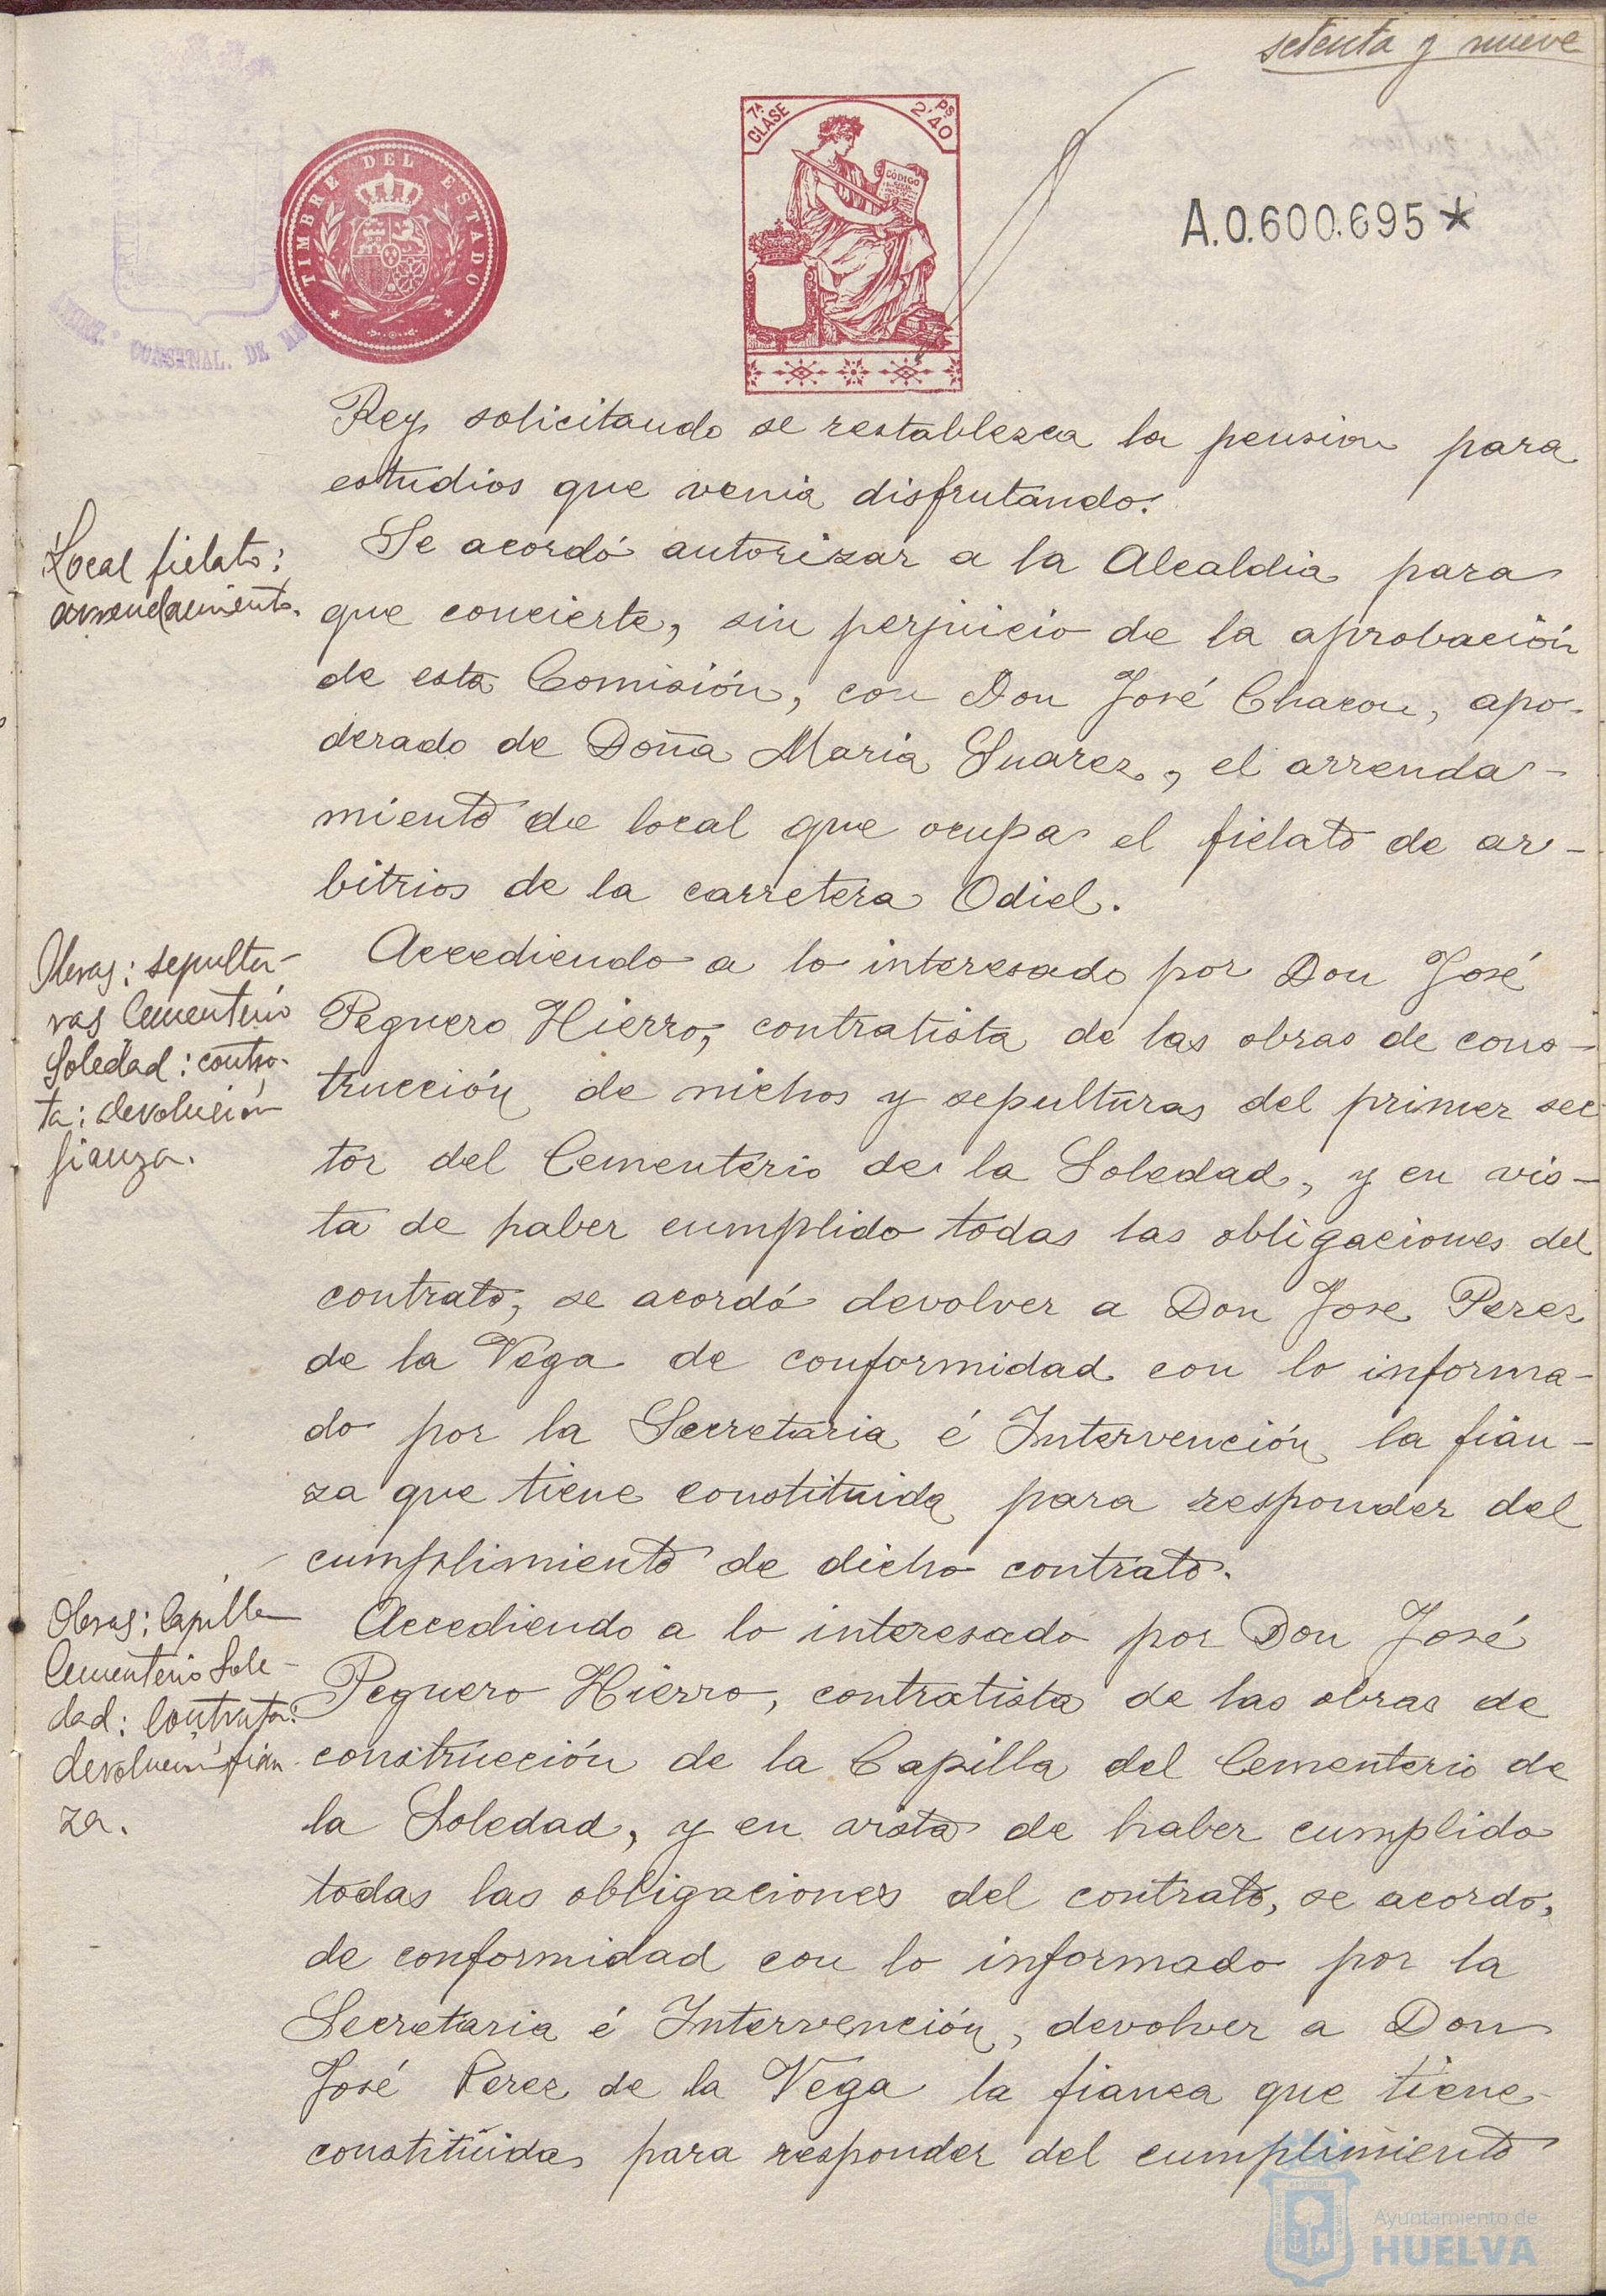 setenta y nueve
TIMBRE DEL ESTADO
7ª CLASE
2'40 Ps
CÓDIGO
A.0.600.695*
Rey solicitando se restablezca la pension para
estudios que venia disfrutando.
Local fielato:
arrendamiento.
Se acordó autorizar a la Alcaldia para
que concierte, sin perjuicio de la aprobación
de esta Comisión, con Don José Chacon, apo-
derado de Doña Maria Suarez, el arrenda-
miento de local que ocupa el fielato de ar-
bitrios de la carretera Odiel.
Obras: sepultu-
ras Cementerio
Soledad: contra-
ta: devolución
fianza.
Accediendo a lo interesado por Don José
Peguero Hierro, contratista de las obras de cons-
trucción de nichos y sepulturas del primer sec-
tor del Cementerio de la Soledad, y en vis-
ta de haber cumplido todas las obligaciones del
contrato, se acordó devolver a Don Jose Perez
de la Vega de conformidad con lo informa-
do por la Secretaria é Intervención la fian-
za que tiene constituida para responder del
cumplimiento de dicho contrato.
Obras: Capilla
Cementerio Sole-
dad: Contrata:
devolución fian-
za.
Accediendo a lo interesado por Don José
Peguero Hierro, contratista de las obras de
construcción de la Capilla del Cementerio de
la Soledad, y en vista de haber cumplido
todas las obligaciones del contrato, se acordo,
de conformidad con lo informado por la
Secretaria é Intervención, devolver a Don
José Perez de la Vega la fianza que tiene
constituida para responder del cumplimiento
Ayuntamiento de
HUELVA